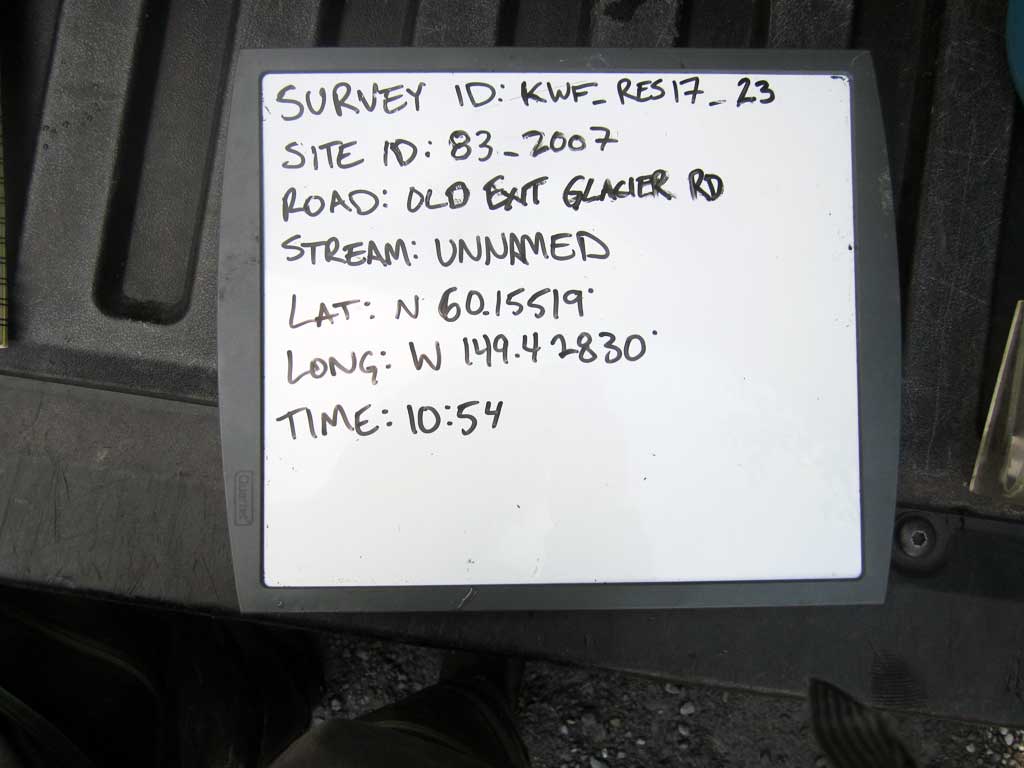 SURVEY ID: KWF_RES17_23
SITE ID: 83_2007
ROAD: OLD EXIT GLACIER RD
STREAM: UNNAMED
LAT: N 60.15519°
LONG: W 149.42830°
TIME: 10:54
Quartet